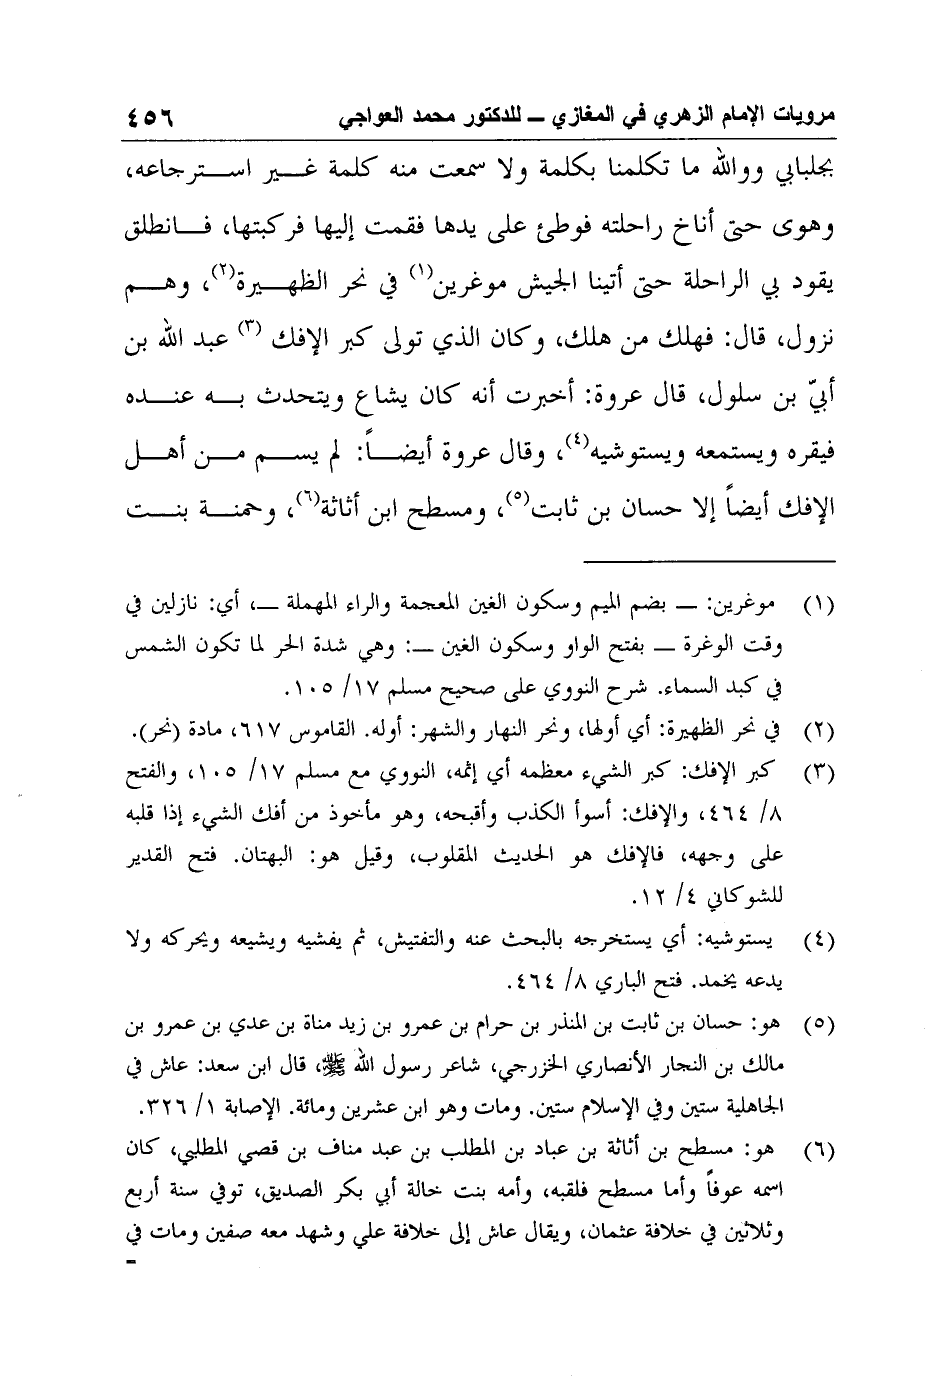 مرويات الإمام الزهري في المغازي ــ للدكتور محمد العواجي ٤٥٦
بجلبابي ووالله ما تكلمنا بكلمة ولا سمعت منه كلمة غير استرجاعه،
وهوى حتى أناخ راحلته فوطئ على يدها فقمت إليها فركبتها، فانطلق
يقود بي الراحلة حتى أتينا الجيش موغرين(١) في نحر الظهيرة(٢)، وهم
نزول، قال: فهلك من هلك، وكان الذي تولى كبر الإفك (٣) عبد الله بن
أبيّ بن سلول، قال عروة: أخبرت أنه كان يشاع ويتحدث به عنده
فيقره ويستمعه ويستوشيه(٤)، وقال عروة أيضاً: لم يسم من أهل
الإفك أيضاً إلا حسان بن ثابت(٥)، ومسطح ابن أثاثة(٦)، وحمنة بنت
(١) موغرين: ــ بضم الميم وسكون الغين المعجمة والراء المهملة ــ، أي: نازلين في
وقت الوغرة ــ بفتح الواو وسكون الغين ــ: وهي شدة الحر لما تكون الشمس
في كبد السماء. شرح النووي على صحيح مسلم ١٧/ ١٠٥.
(٢) في نحر الظهيرة: أي أولها، ونحر النهار والشهر: أوله. القاموس ٦١٧، مادة (نحر).
(٣) كبر الإفك: كبر الشيء معظمه أي إثمه، النووي مع مسلم ١٧/ ١٠٥، والفتح
٨/ ٤٦٤، والإفك: أسوأ الكذب وأقبحه، وهو مأخوذ من أفك الشيء إذا قلبه
على وجهه، فالإفك هو الحديث المقلوب، وقيل هو: البهتان. فتح القدير
للشوكاني ٤/ ١٢.
(٤) يستوشيه: أي يستخرجه بالبحث عنه والتفتيش، ثم يفشيه ويشيعه ويحركه ولا
يدعه يخمد. فتح الباري ٨/ ٤٦٤.
(٥) هو: حسان بن ثابت بن المنذر بن حرام بن عمرو بن زيد مناة بن عدي بن عمرو بن
مالك بن النجار الأنصاري الخزرجي، شاعر رسول الله ﷺ، قال ابن سعد: عاش في
الجاهلية ستين وفي الإسلام ستين. ومات وهو ابن عشرين ومائة. الإصابة ١/ ٣٢٦.
(٦) هو: مسطح بن أثاثة بن عباد بن المطلب بن عبد مناف بن قصي المطلبي، كان
اسمه عوفاً وأما مسطح فلقبه، وأمه بنت خالة أبي بكر الصديق، توفي سنة أربع
وثلاثين في خلافة عثمان، ويقال عاش إلى خلافة علي وشهد معه صفين ومات في
=